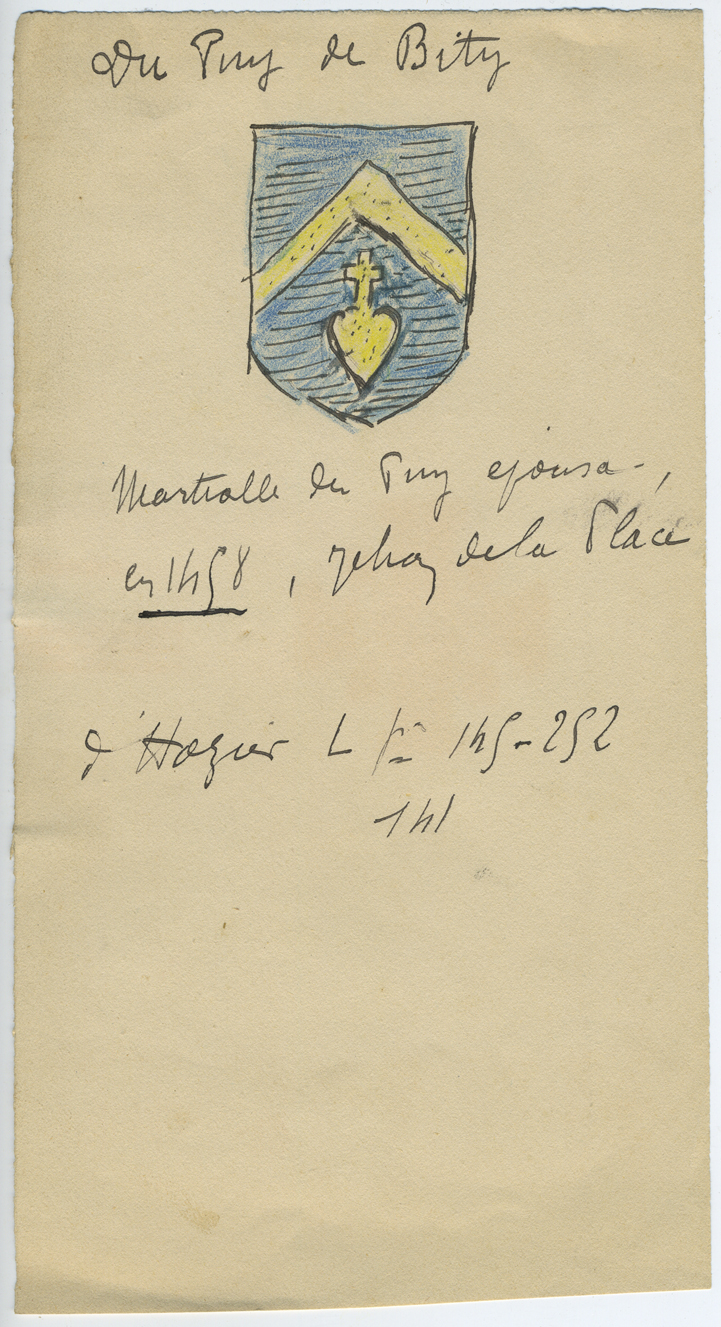 Du Puy de Bity
Martialle du Puy épousa,
en 1458, Jehan de la Place
d'Hozier L 145-252
141